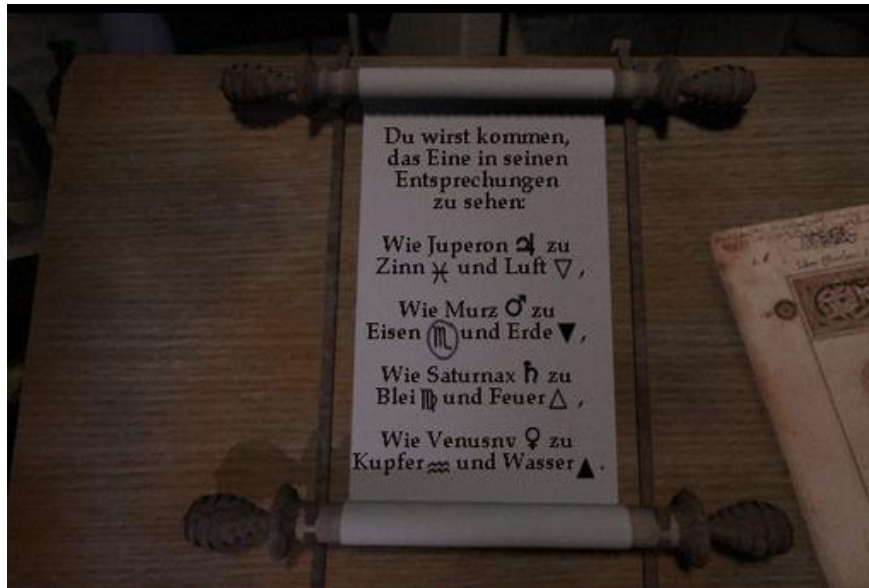 Du wirst kommen,
das Eine in seinen
Entsprechungen
zu sehen:
Wie Juperon ♃ zu
Zinn ♓ und Luft ▽,
Wie Murz ♂ zu
Eisen ♏ und Erde ▼,
Wie Saturnax ♄ zu
Blei ♍ und Feuer △,
Wie Venusnv ♀ zu
Kupfer ♒ und Wasser ▲.